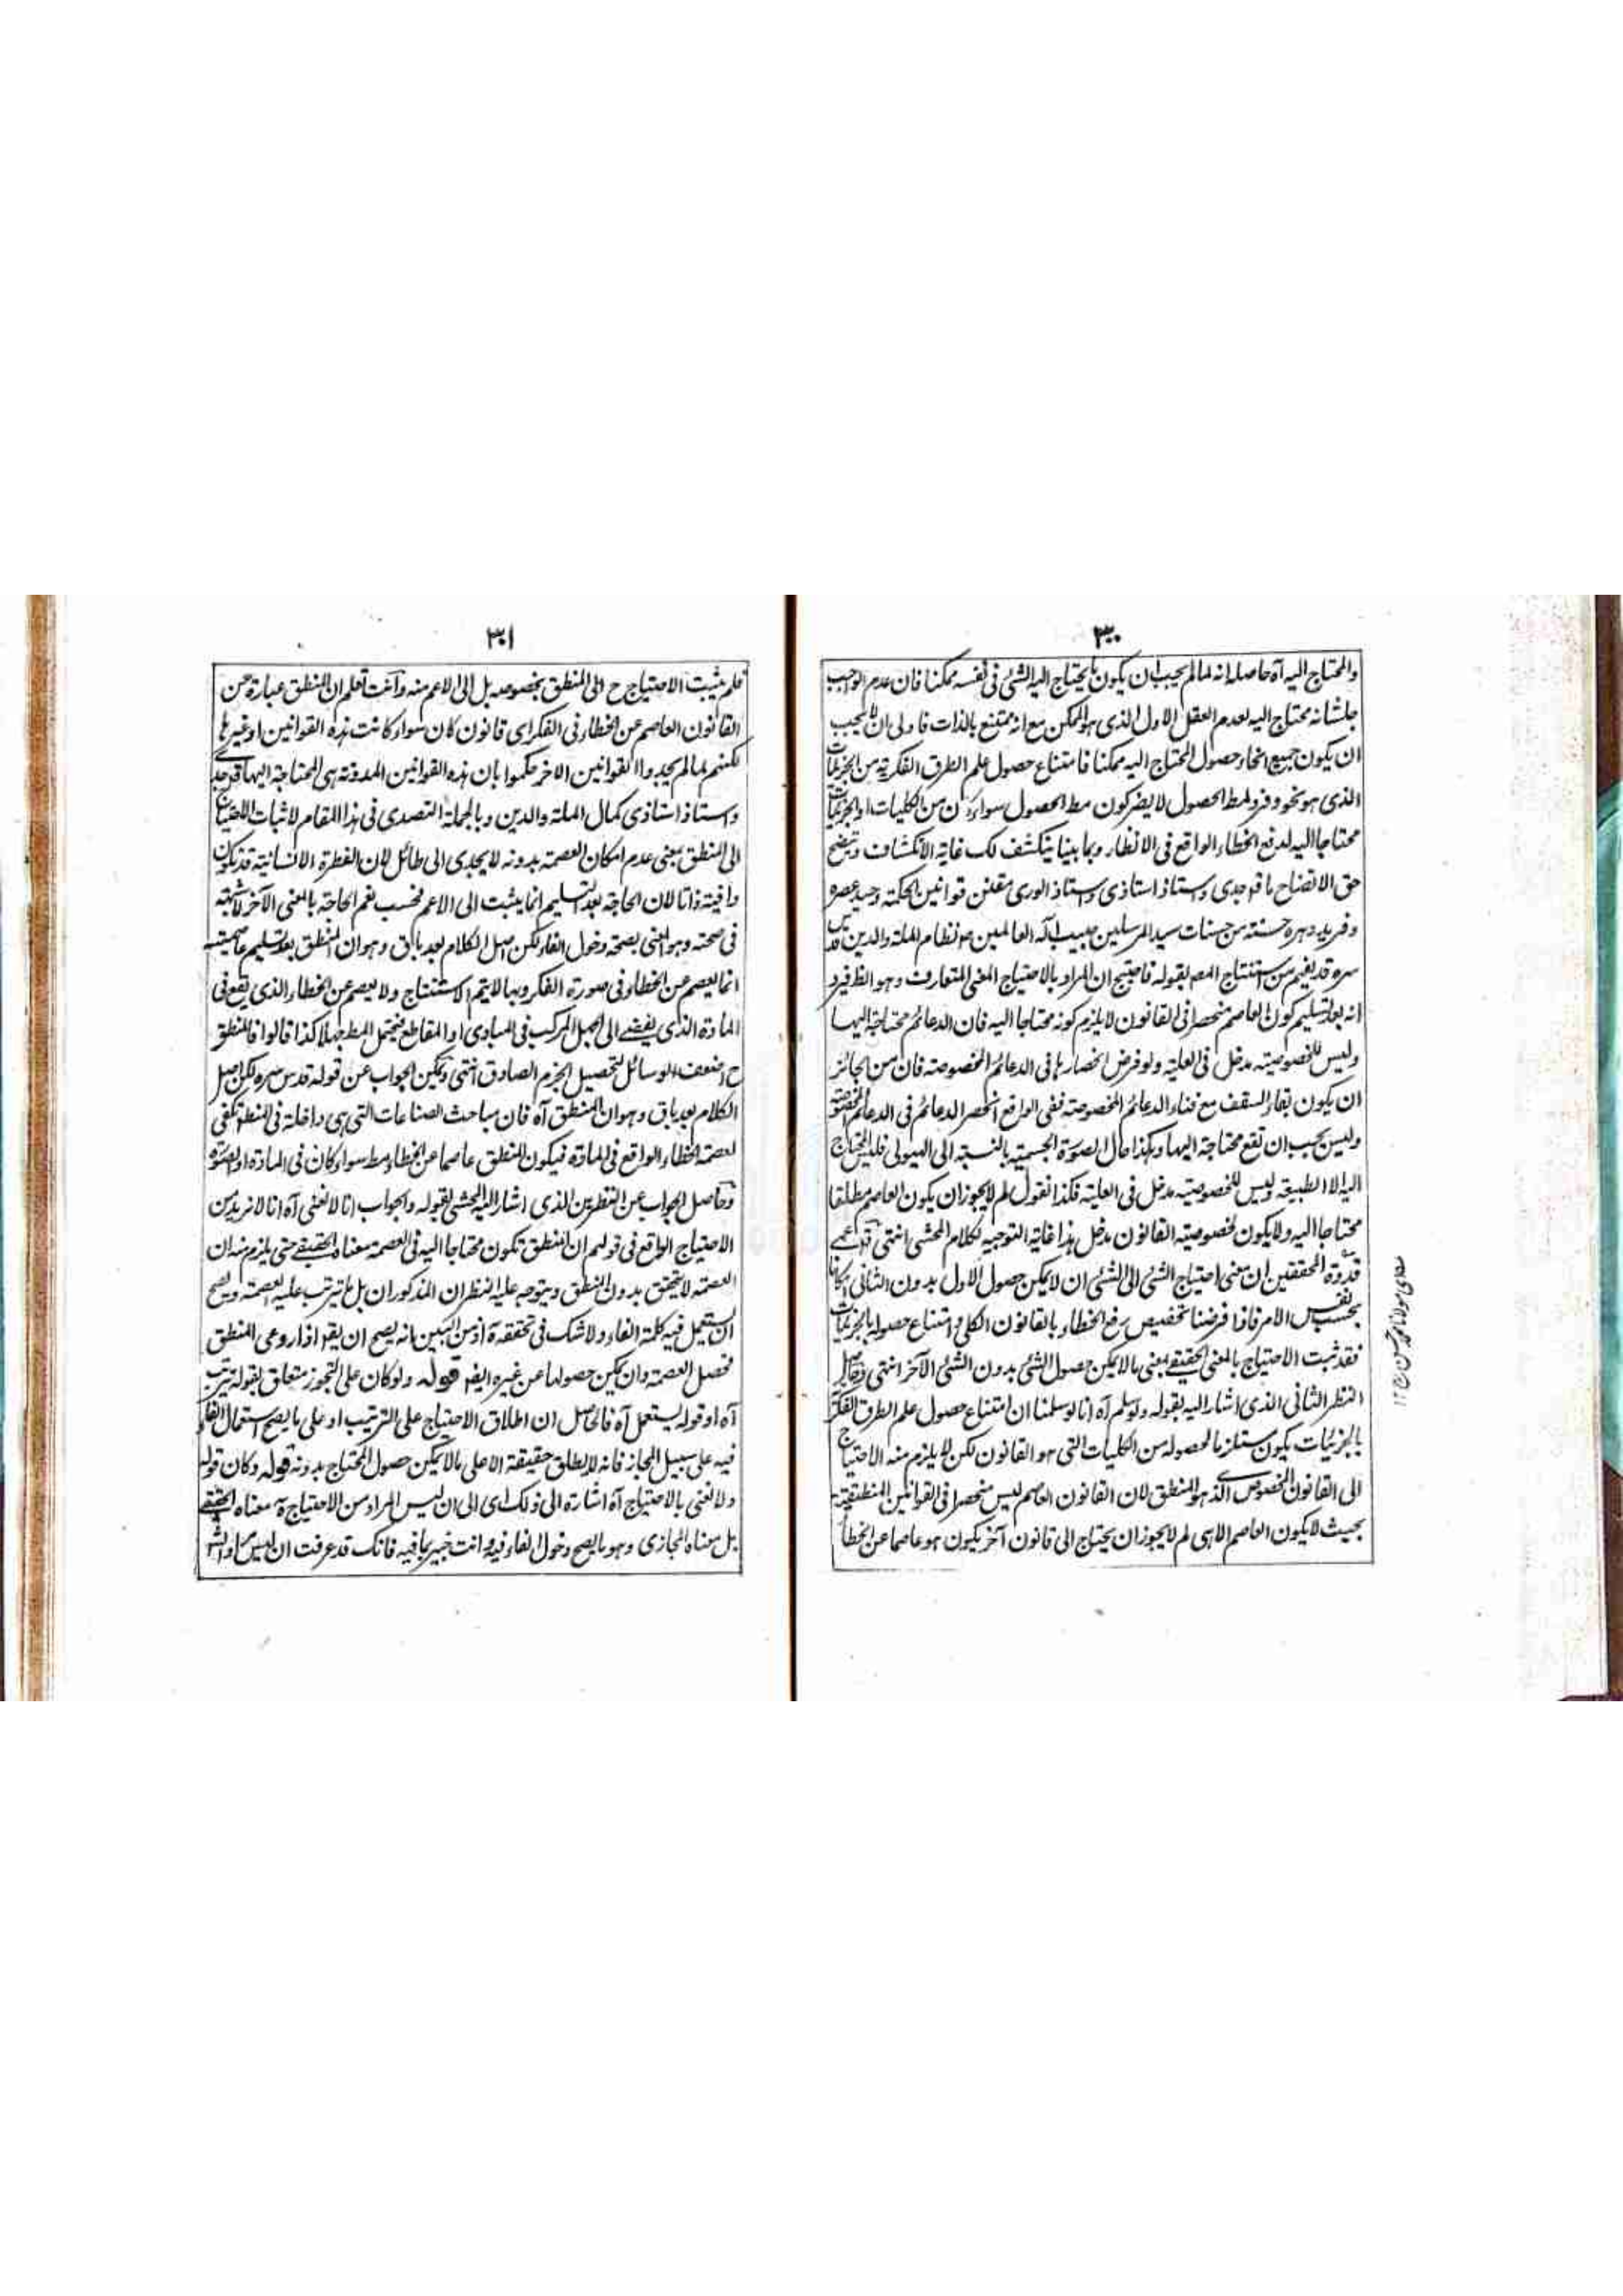 ٣٠٠
والمحتاج اليه آه حاصله انه لما لم يجب ان يكون ما يحتاج اليه الشئ فى نفسه ممكنا فان عدم الواجب
جلشانه محتاج اليه لعدم العقل الاول الذى هو الممكن مع انه ممتنع بالذات فاولى بان لا يجب
ان يكون جميع انحاء حصول المحتاج اليه ممكنا فامتناع حصول علم الطرق الفكرية من الجزئيات
الذى هو نحو وفرد لمط الحصول لا يضر كون مط الحصول سواء كان من الكليات او الجزئيات
محتاجا اليه لدفع الخطاء الواقع فى الانظار وبما بينا ينكشف لك غاية الانكشاف ويتضح
حق الاتضاح ما قوجدى واستاذ استاذى واستاذ الورى مقنن قوانين الحكمة وحيد عصره
وفريد دهره حسنة من حسنات سيد المرسلين حبيب اله العالمين مو نظام الملة والدين قدس
سره قد يفهم من استنتاج المصه بقوله فاحتيج ان المراد بالاحتياج المعنى المتعارف وهو الظ فيرد
انه بعد تسليم كون العاصم منحصرا فى القانون لا يلزم كونه محتاجا اليه فان الدعائم محتاجة اليها
وليس للخصوصية مدخل فى العلية ولو فرض انحصارها فى الدعائم المخصوصة فان من الجائز
ان يكون بقاء السقف مع فناء الدعائم المخصوصة ففى الواقع انحصر الدعائم فى الدعائم المخصوصة
وليس يجب ان تقع محتاجة اليها وهكذا حال الصورة الجسمية بالنسبة الى الهيولى فليس المحتاج
اليه الا الطبيعة وليس للخصوصية مدخل فى العلية فكذا نقول لم لا يجوز ان يكون العاصم مطلقا
محتاجا اليه ولا يكون لخصوصية القانون مدخل هذا غاية التوجيه لكلام المحشى انتهى قو عمى
قدوة المحققين ان معنى احتياج الشئ الى الشئ ان لا يمكن حصول الاول بدون الثانى امكانا
بحسب نفس الامر فاذا فرضنا تخصيص رفع الخطاء بالقانون الكلى وامتناع حصوله بالجزئيات
فقد ثبت الاحتياج بالمعنى الحقيقے بمعنى ما لا يمكن حصول الشئ بدون الشئ الآخر انتهى وحاصل
النظر الثانى الذى اشار اليه بقوله ولو سلم آه انا لو سلمنا ان امتناع حصول علم الطرق الفكرية
بالجزئيات يكون مستلزما لحصوله من الكليات التى هو القانون لكن لا يلزم منه الاحتياج
الى القانون المخصوص الذى هو المنطق لان القانون العاصم ليس منحصرا فى القوانين المنطقية
بحيث لا يكون العاصم الا هى لم لا يجوز ان يحتاج الى قانون آخر يكون هو عاصما عن الخطأ
مولانا محمد حسن ١٢
٣٠١
فلم يثبت الاحتياج ح الى المنطق بخصوصه بل الى الاعم منه وانت تعلم ان المنطق عبارة عن
القانون العاصم عن الخطاء فى الفكر اى قانون كان سواء كانت هذه القوانين او غيرها
لكنهم لما لم يجدوا القوانين الاخر حكموا بان هذه القوانين المدونة هى المحتاجة اليها قوجدى
واستاذ استاذى كمال الملة والدين وبالجملة التصدى فى هذا المقام لاثبات الاحتياج
الى المنطق بمعنى عدم امكان العصمة بدونه لا يجدى الى طائل لان الفطرة الانسانية قد يكون
وافية ذاتا لان الحاجة بعد التسليم انما يثبت الى الاعم فحسب نعم الحاجة بالمعنى الآخر لا شبهة
فى صحته وهو المعنى بصحة دخول الفاء لكن اصل الكلام بعد باق وهو ان المنطق بعد تسليم عاصميته
انما يعصم عن الخطاء فى صورة الفكر وبها لا يتم الاستنتاج ولا يعصم عن الخطاء الذى يقع فى
المادة الذى يفضے الى الجهل المركب فى المبادى او المقاطع فيحتمل المط جهلا كذا قالوا فالمنطق
ح اضعف الوسائل لتحصيل الجزم الصادق انتهى ويمكن الجواب عن قوله قدس سره لكن اصل
الكلام بعد باق وهو ان المنطق آه فان مباحث الصناعات التى هى داخلة فى المنطق تكفى
لعصمة الخطاء الواقع فى المادة فيكون المنطق عاصما عن الخطاء مط سواء كان فى المادة او الصورة
وحاصل الجواب عن النظرين الذى اشار اليه المحشى بقوله والجواب انا لا نعنى آه انا لا نريد من
الاحتياج الواقع فى قولهم ان المنطق تكون محتاجا اليه فى العصمة معناه الحقيقے حتى يلزم منه ان
العصمة لا يتحقق بدون المنطق ويتوجه عليه النظران المذكوران بل ما يترتب عليه العصمة ويصح
ان يستعمل فيه كلمة الفاء ولا شك فى تحققه آه اذ من البين انه يصح ان يقه اذا روعى المنطق
فحصل العصمة وان يمكن حصولها عن غيره ايضه قوله ولو كان على التجوز متعلق بقوله يترتب
آه او قوله يستعمل آه فالحاصل ان اطلاق الاحتياج على الترتيب او على ما يصح استعمال الفاء
فيه على سبيل المجاز فانه لا يطلق حقيقة الا على ما لا يمكن حصول المحتاج بدونه قوله وكان قوله
ولا نعنى بالاحتياج آه اشارة الى ذلك اى الى ان ليس المراد من الاحتياج آه معناه الحقيقے
بل معناه المجازى وهو ما يصح دخول الفاء فيه وانت خبير بما فيه فانك قد عرفت ان ليس